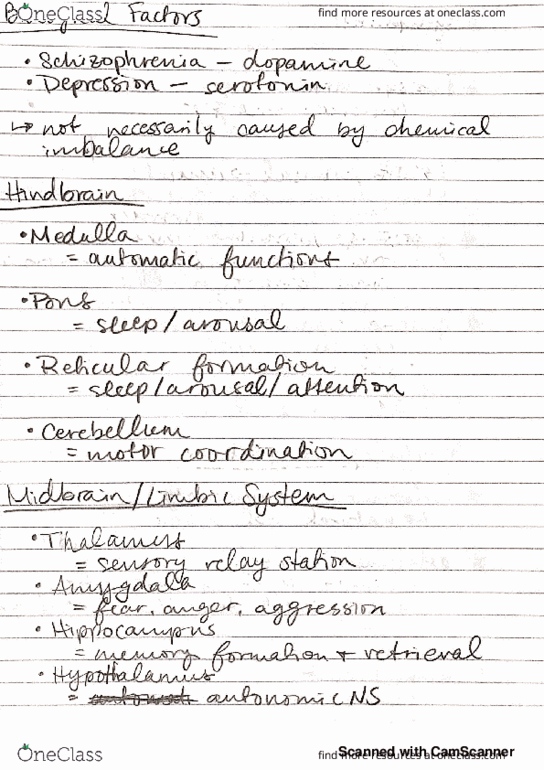 OneClass find more resources at oneclass.com
Factors
• Schizophrenia – dopamine
• Depression – serotonin
↳ not necessarily caused by chemical
imbalance
Hindbrain
• Medulla
= automatic functions
• Pons
= sleep/arousal
• Reticular formation
= sleep/arousal/attention
• Cerebellum
= motor coordination
Midbrain/Limbic System
• Thalamus
= sensory relay station
• Amygdala
= fear, anger, aggression
• Hippocampus
= memory formation + retrieval
• Hypothalamus
= autonomic NS
OneClass find more resources at oneclass.com
Scanned with CamScanner